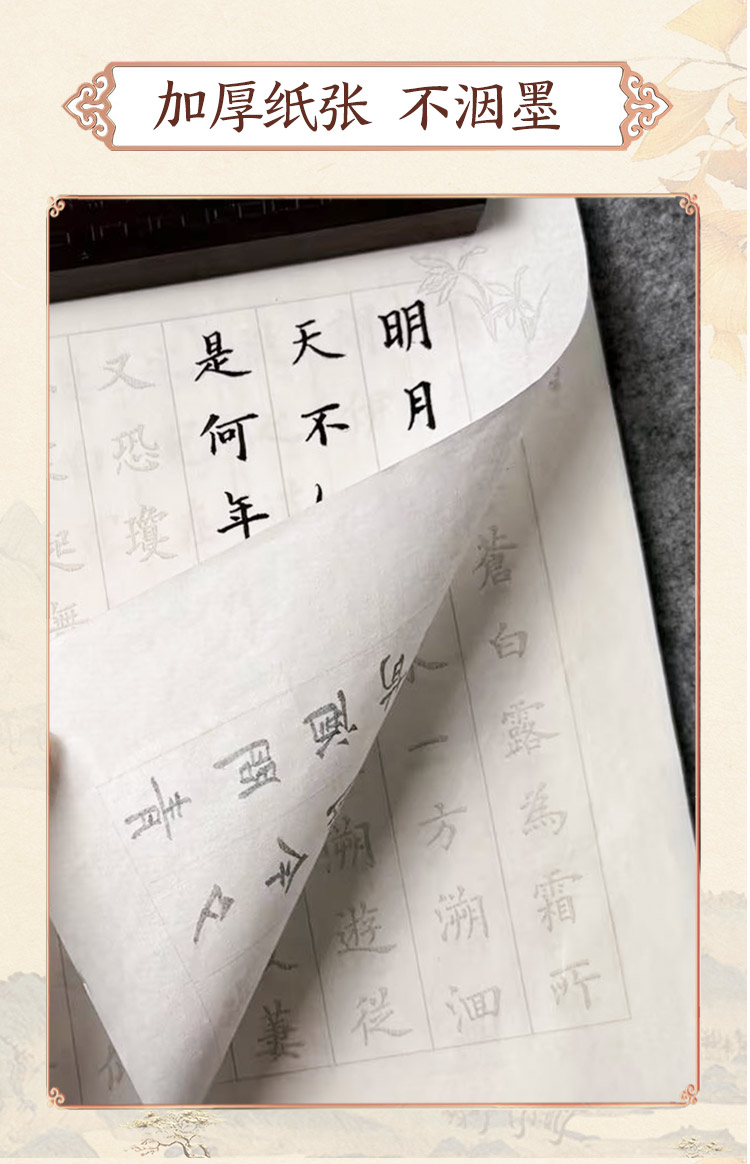 加厚纸张 不洇墨
明月
天不
是何年
又恐瓊
蒼白露為霜所
一方溯洄
溯遊從
萋